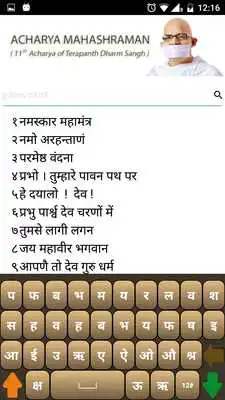 12:16
ACHARYA MAHASHRAMAN
( 11th Acharya of Terapanth Dharm Sangh )
१ नमस्कार महामंत्र
२ नमो अरहन्ताणं
३ परमेष्ठ वंदना
४ प्रभो । तुम्हारे पावन पथ पर
५ हे दयालो ! देव !
६ प्रभु पार्श्व देव चरणों में
७ तुमसे लागी लगन
८ जय महावीर भगवान
९ आपणै तो देव गुरु धर्म
प फ ब भ म य र ल व श
स ह व ह ब भ य फ ष इ
आ ई उ ऋ ए ऐ ओ औ श्र
क्ष ऊ ऋ 12#